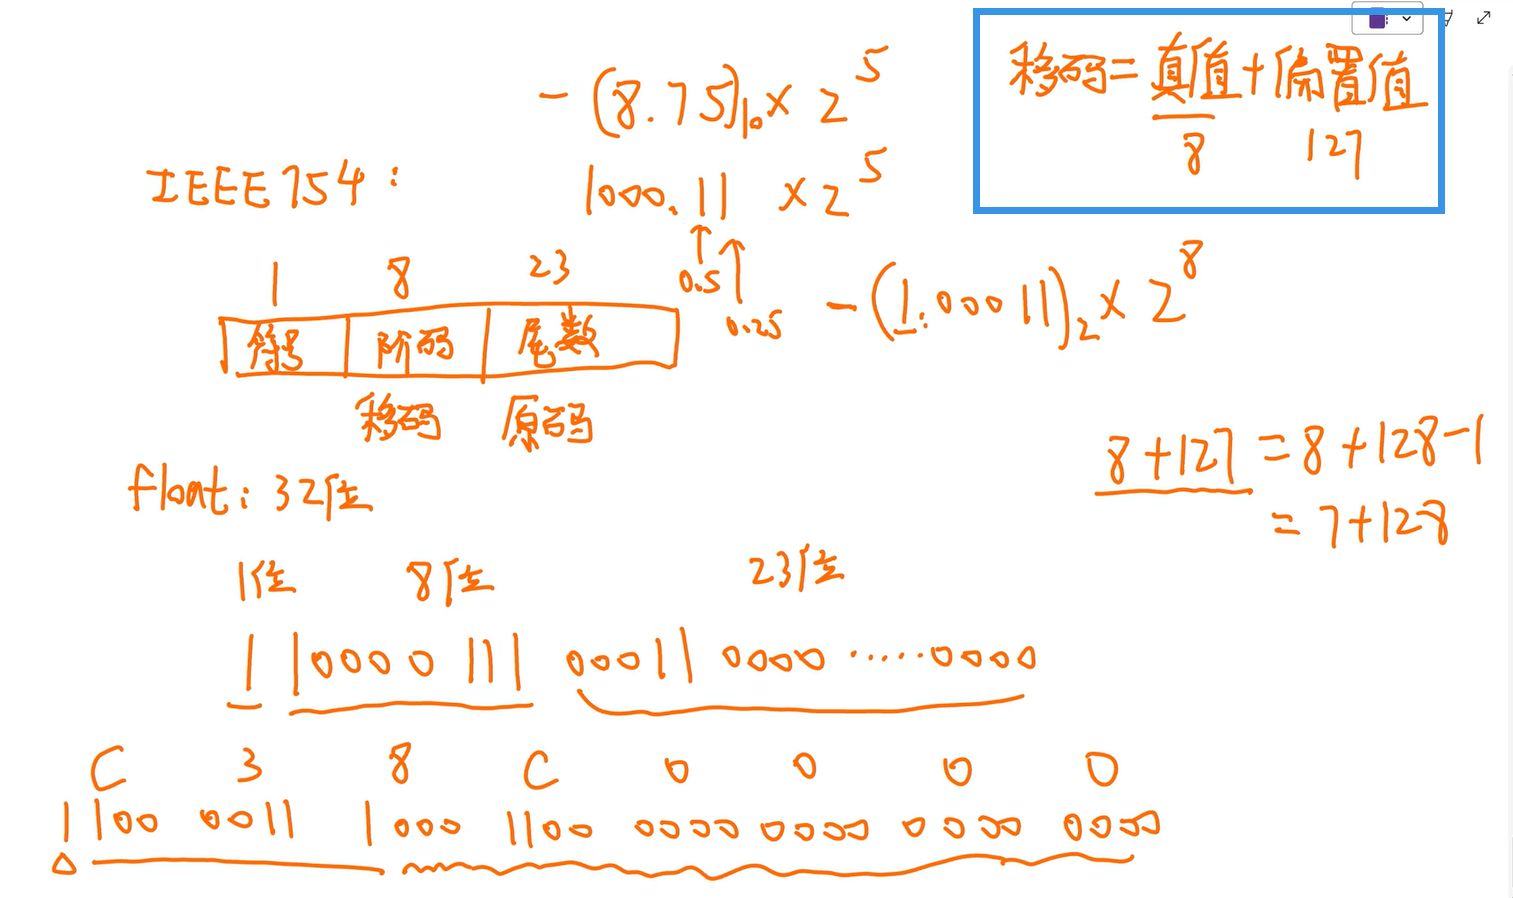 -(8.75)₁₀×2⁵
移码=真值+偏置值
8 127
IEEE754:
1000.11 ×2⁵
0.5
0.25
-(1.00011)₂×2⁸
1 8 23
符号 阶码 尾数
移码 原码
8+127=8+128-1
=7+128
float: 32位
1位 8位 23位
1 10000111 00011 0000 ······0000
C 3 8 C 0 0 0 0
1 100 0011 1000 1100 0000 0000 0000 0000